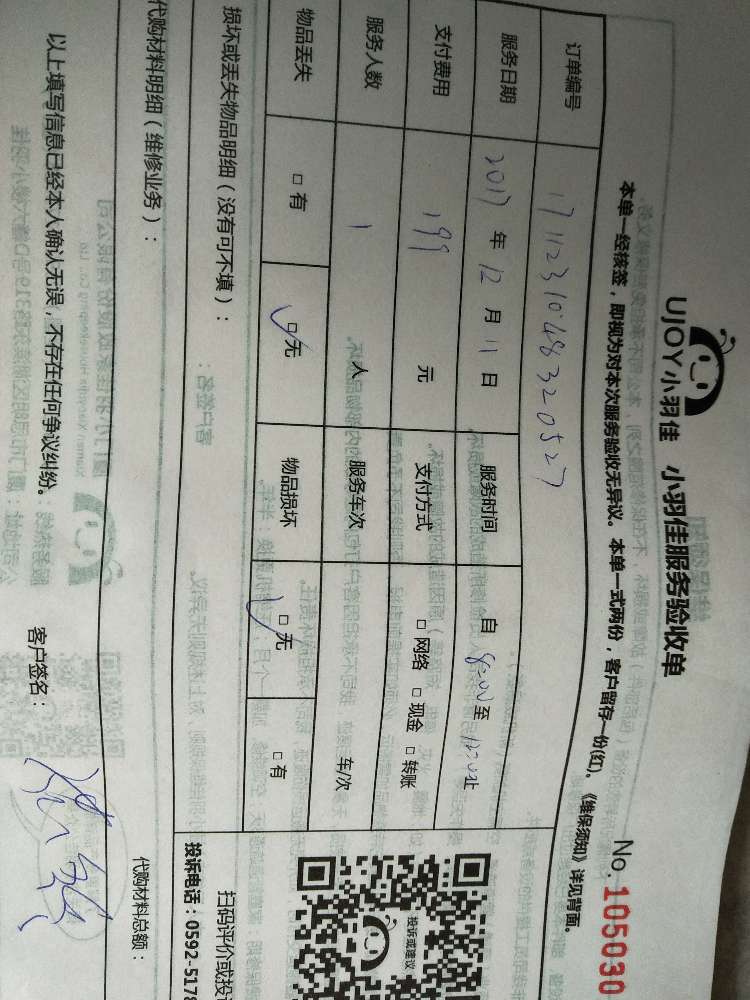 UJOY小羽佳 小羽佳服务验收单
No.105030
本单一经核签，即视为对本次服务验收无异议。本单一式两份，客户留存一份(红)。《维保须知》详见背面。
订单编号 1711231048320527
服务日期 2017年12月11日 服务时间 自8:00至12:00止
支付费用 199元 支付方式 □网络 □现金 □转账
服务人数 1人 服务车次 车/次
物品丢失 □有 □无 物品损坏 □无 □有
投诉或建议
扫码评价或投
投诉电话：0592-5178
损坏或丢失物品明细（没有可不填）：
代购材料明细（维修业务）：
代购材料总额：
以上填写信息已经本人确认无误，不存在任何争议纠纷。 客户签名：